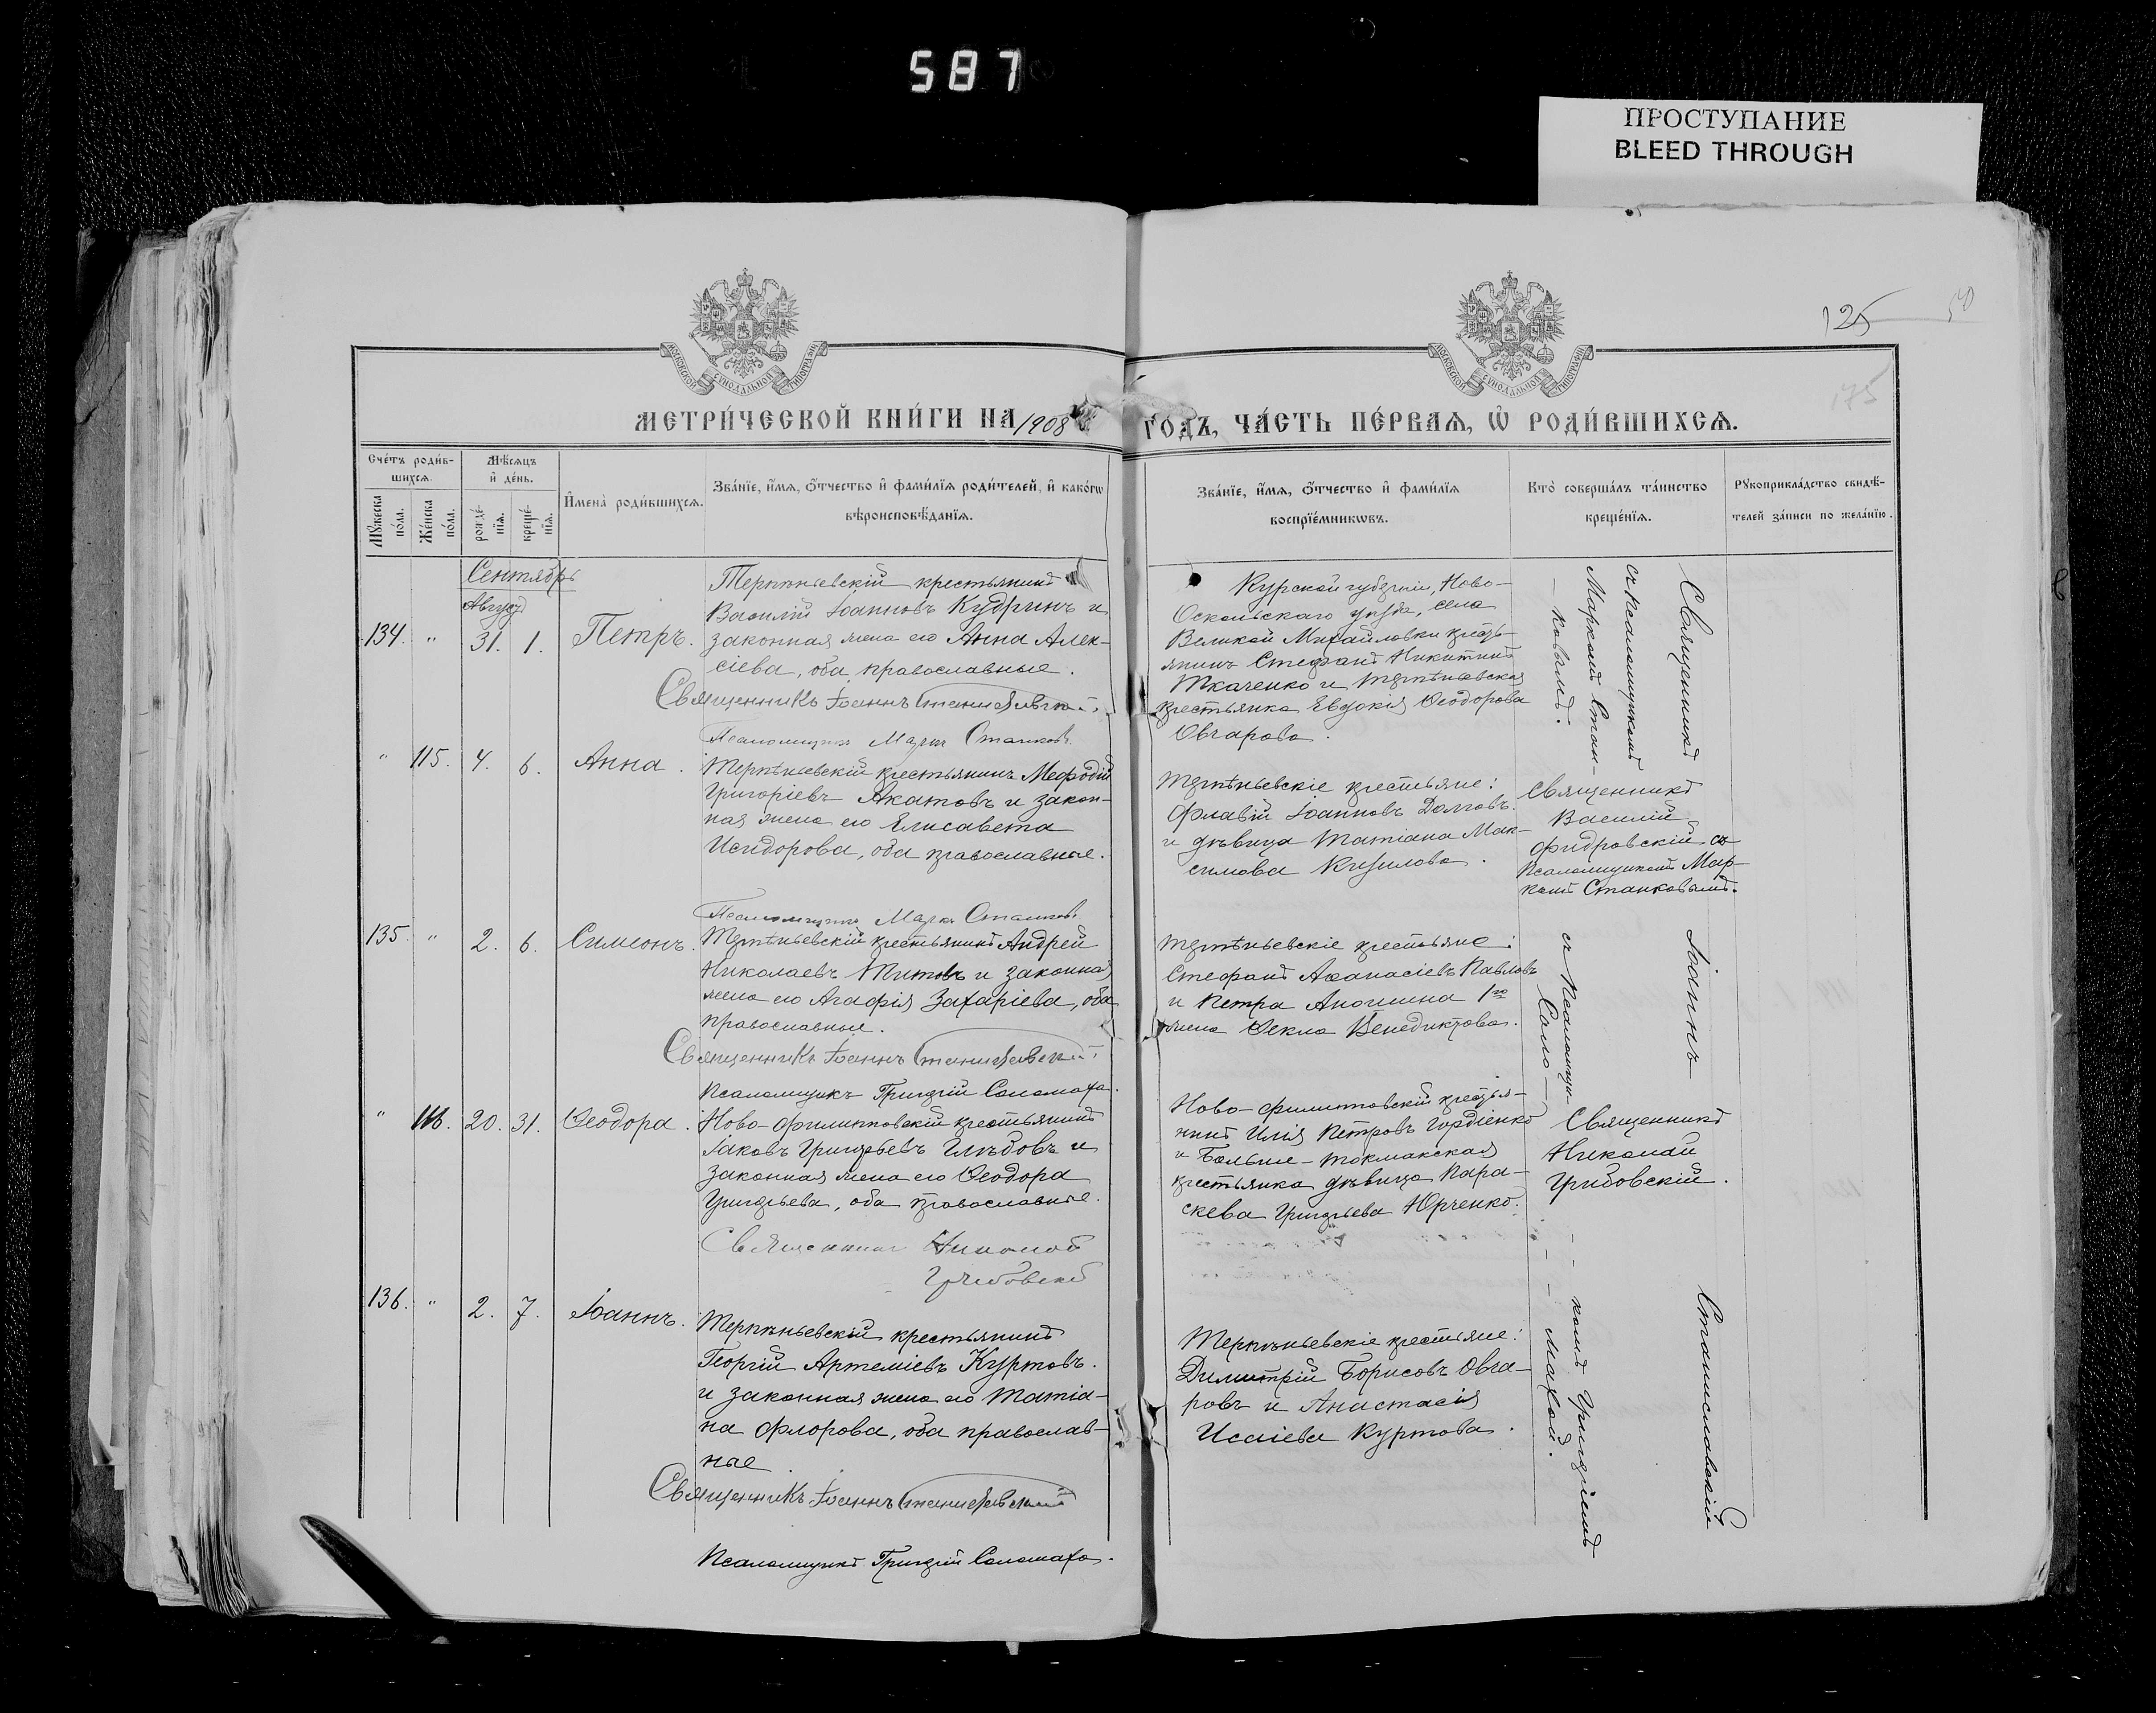 587
ПРОСТУПАНИЕ
BLEED THROUGH
125
50
175
МОСКОВСКОЙ СѴНОДАЛЬНОЙ ТИПОГРАФІИ
МОСКОВСКОЙ СѴНОДАЛЬНОЙ ТИПОГРАФІИ
МЕТРИ́ЧЕСКОЙ КНИ́ГИ НА 1908
ГО́ДЪ, ЧА́СТЬ ПЕ́РВАѦ, Ѡ҆ РОДИ́ВШИХСѦ.
Сче́тъ роди́в-
шихсѧ.
Мꙋ́жеска по́ла.
Же́нска по́ла.
Мѣ́сѧцъ
и҆ де́нь.
рожде́-
нїѧ.
креще́-
нїѧ.
И҆мена̀ роди́вшихсѧ.
Зва́нїе, и҆́мѧ, ѻ҆́тчество и҆ фами́лїѧ роди́телей, и҆ како́гѡ
вѣроисповѣ́данїѧ.
Зва́нїе, и҆́мѧ, ѻ҆́тчество и҆ фами́лїѧ
воспрїе́мникѡвъ.
Кто̀ соверша́лъ та́инство
креще́нїѧ.
Рꙋкоприкла́дство свидѣ́-
телей за́писи по жела́нїю.
Сентябрь
Август
134. " 31. 1. Петръ.
Терпѣньевскій крестьянинъ
Василій Іоанновъ Кудринъ и
законная жена его Анна Алек-
сіева, оба православные.
Священникъ Іоаннъ Станиславскій
Псаломщикъ Маркъ Станковъ
Курской губерніи, Ново-
Оскольскаго уѣзда, села
Великой Михайловки кресть-
янинъ Стефанъ Никитинъ
Ткаченко и терпѣньевская
крестьянка Евдокія Ѳеодорова
Овчарова.
Священникъ
съ псаломщикомъ
Маркомъ Стан-
ковымъ.
" 115. 4. 6. Анна.
Терпѣньевскій крестьянинъ Меѳодій
Григоріевъ Акатовъ и закон-
ная жена его Елисавета
Исидорова, оба православные.
Псаломщикъ Маркъ Станковъ
Терпѣньевскіе крестьяне:
Флавій Іоанновъ Долговъ
и дѣвица Татіана Мак-
симова Кизилова.
Священникъ
Василій
Фидровскій съ
псаломщикомъ Мар-
комъ Станковымъ.
135. " 2. 6. Симеонъ.
Терпѣньевскій крестьянинъ Андрей
Николаевъ Титовъ и законная
жена его Агафія Захаріева, оба
православные.
Священникъ Іоаннъ Станиславскій
Псаломщикъ Григорій Соломаха.
Терпѣньевскіе крестьяне:
Стефанъ Аѳанасіевъ Павловъ
и Петра Аношина 1го
жена Ѳекла Венедиктова.
Іоаннъ
съ Псаломщи-
Соло-
" 116. 20. 31. Ѳеодора.
Ново-Филипповскій крестьянинъ
Іаковъ Григорьевъ Глѣбовъ и
законная жена его Ѳеодора
Григорьева, оба православные.
Священникъ Николай
Грибовскій
Ново-Филипповскій крестья-
нинъ Илія Петровъ Гордіенко
и Больше-Токмакская
крестьянка дѣвица Пара-
скева Григорьева Юрченко.
Священникъ
Николай
Грибовскій.
136. " 2. 7. Іоаннъ.
Терпѣньевскій крестьянинъ
Георгій Артеміевъ Куртовъ.
и законная жена его Татіа-
на Флорова, оба православ-
ные
Священникъ Іоаннъ Станиславскій
Псаломщикъ Григорій Соломаха.
Терпѣньевскіе крестьяне:
Димитрій Борисовъ Овча-
ровъ и Анастасія
Исаіева Куртова.
Станиславскій
комъ Григоріемъ
махой.